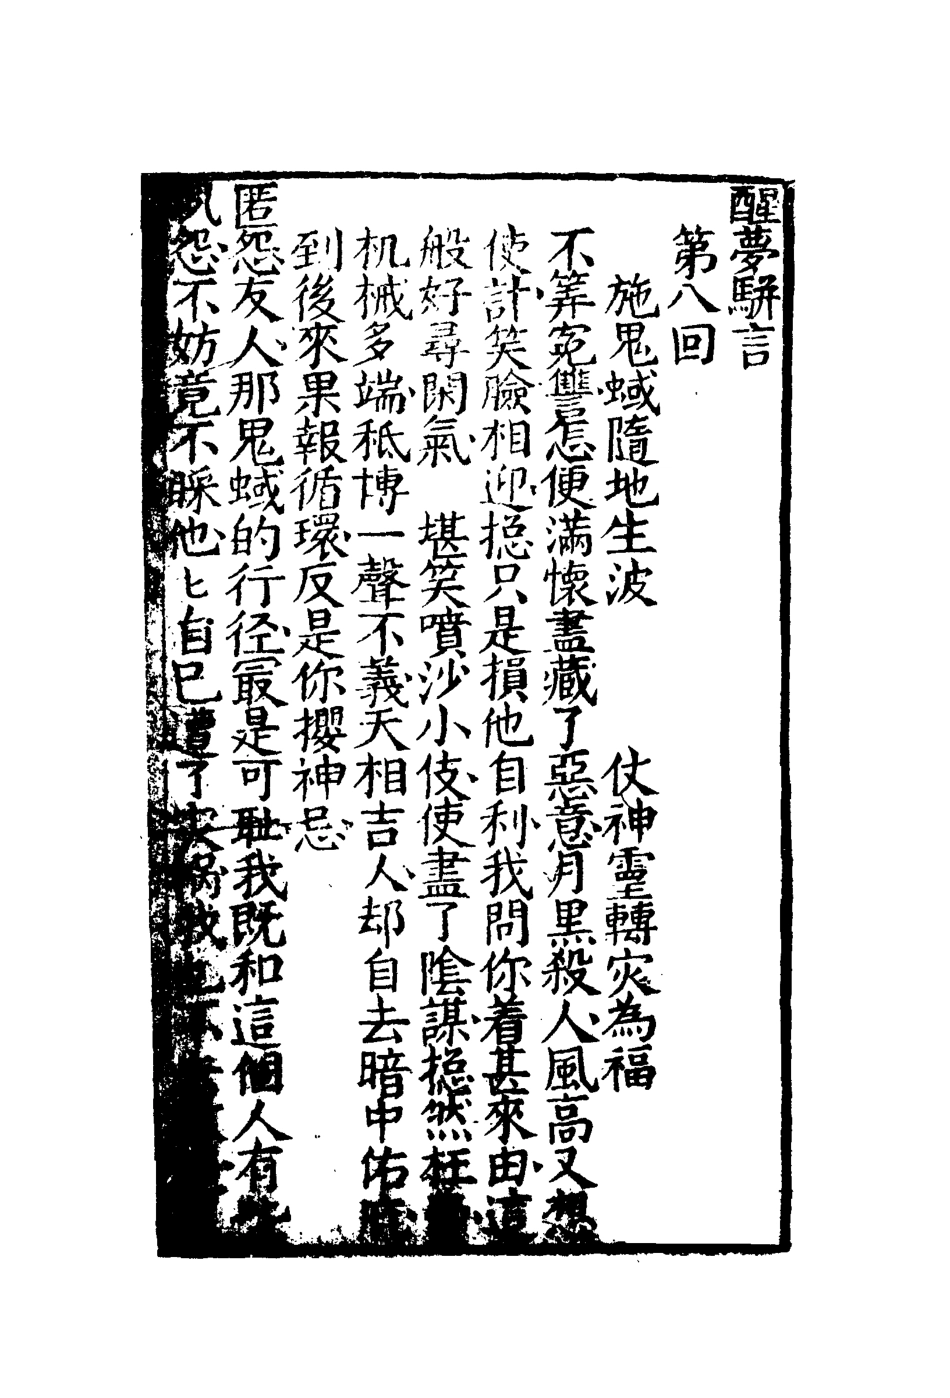 醒夢駢言
第八回
施鬼蜮隨地生波　仗神靈轉灾為福
不筭寃讐怎便滿懷盡藏了惡意月黑殺人風高又想
使計笑臉相迎捴只是損他自利我問你着甚來由這
般好尋閑氣　堪笑噴沙小伎使盡了陰謀捴然枉
机械多端秪博一聲不義天相吉人却自去暗中佑
到後來果報循環反是你攖神忌
匿怨友人那鬼蜮的行径冣是可耻我既和這個人有
怨不妨竟不睬他匕自巳遭了灾禍我也不